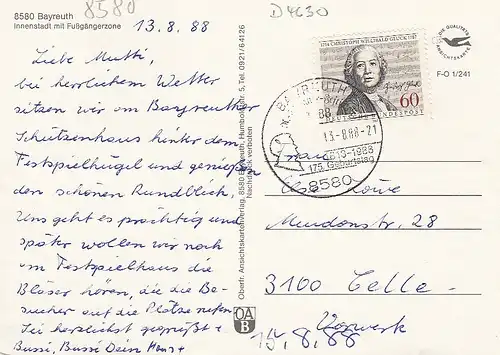 8580
D4630
8580 Bayreuth
Innenstadt mit Fußgängerzone
13.8.88
Liebe Mutti,
bei herrlichem Wetter
sitzen wir am Bayreuther
Schützenhaus hinter dem
Festspielhügel und genießen
den schönen Rundblick.
Uns geht es prächtig und
später wollen wir noch
am Festspielhaus die
Bläser hören, die die Be-
sucher auf die Plätze rufen.
Sei herzlichst gegrüßt +
Bussi, Bussi Dein Hans +
Oberfr. Ansichtskartenverlag, 8580 Bayreuth, Humboldtstr. 5, Tel. 0921/64126
Nachdruck verboten
OA
B
CHRISTOPH WILLIBALD GLUCK
60
DEUTSCHE BUNDESPOST
BAYREUTH
13.-8.88-21
1813-1988
175. Geburtstag
8580
DIE QUALITÄTS
ANSICHTSKARTE
F-O 1/241
Frau
Löwe
28
3100 Celle-
Vorwerk
15.8.88